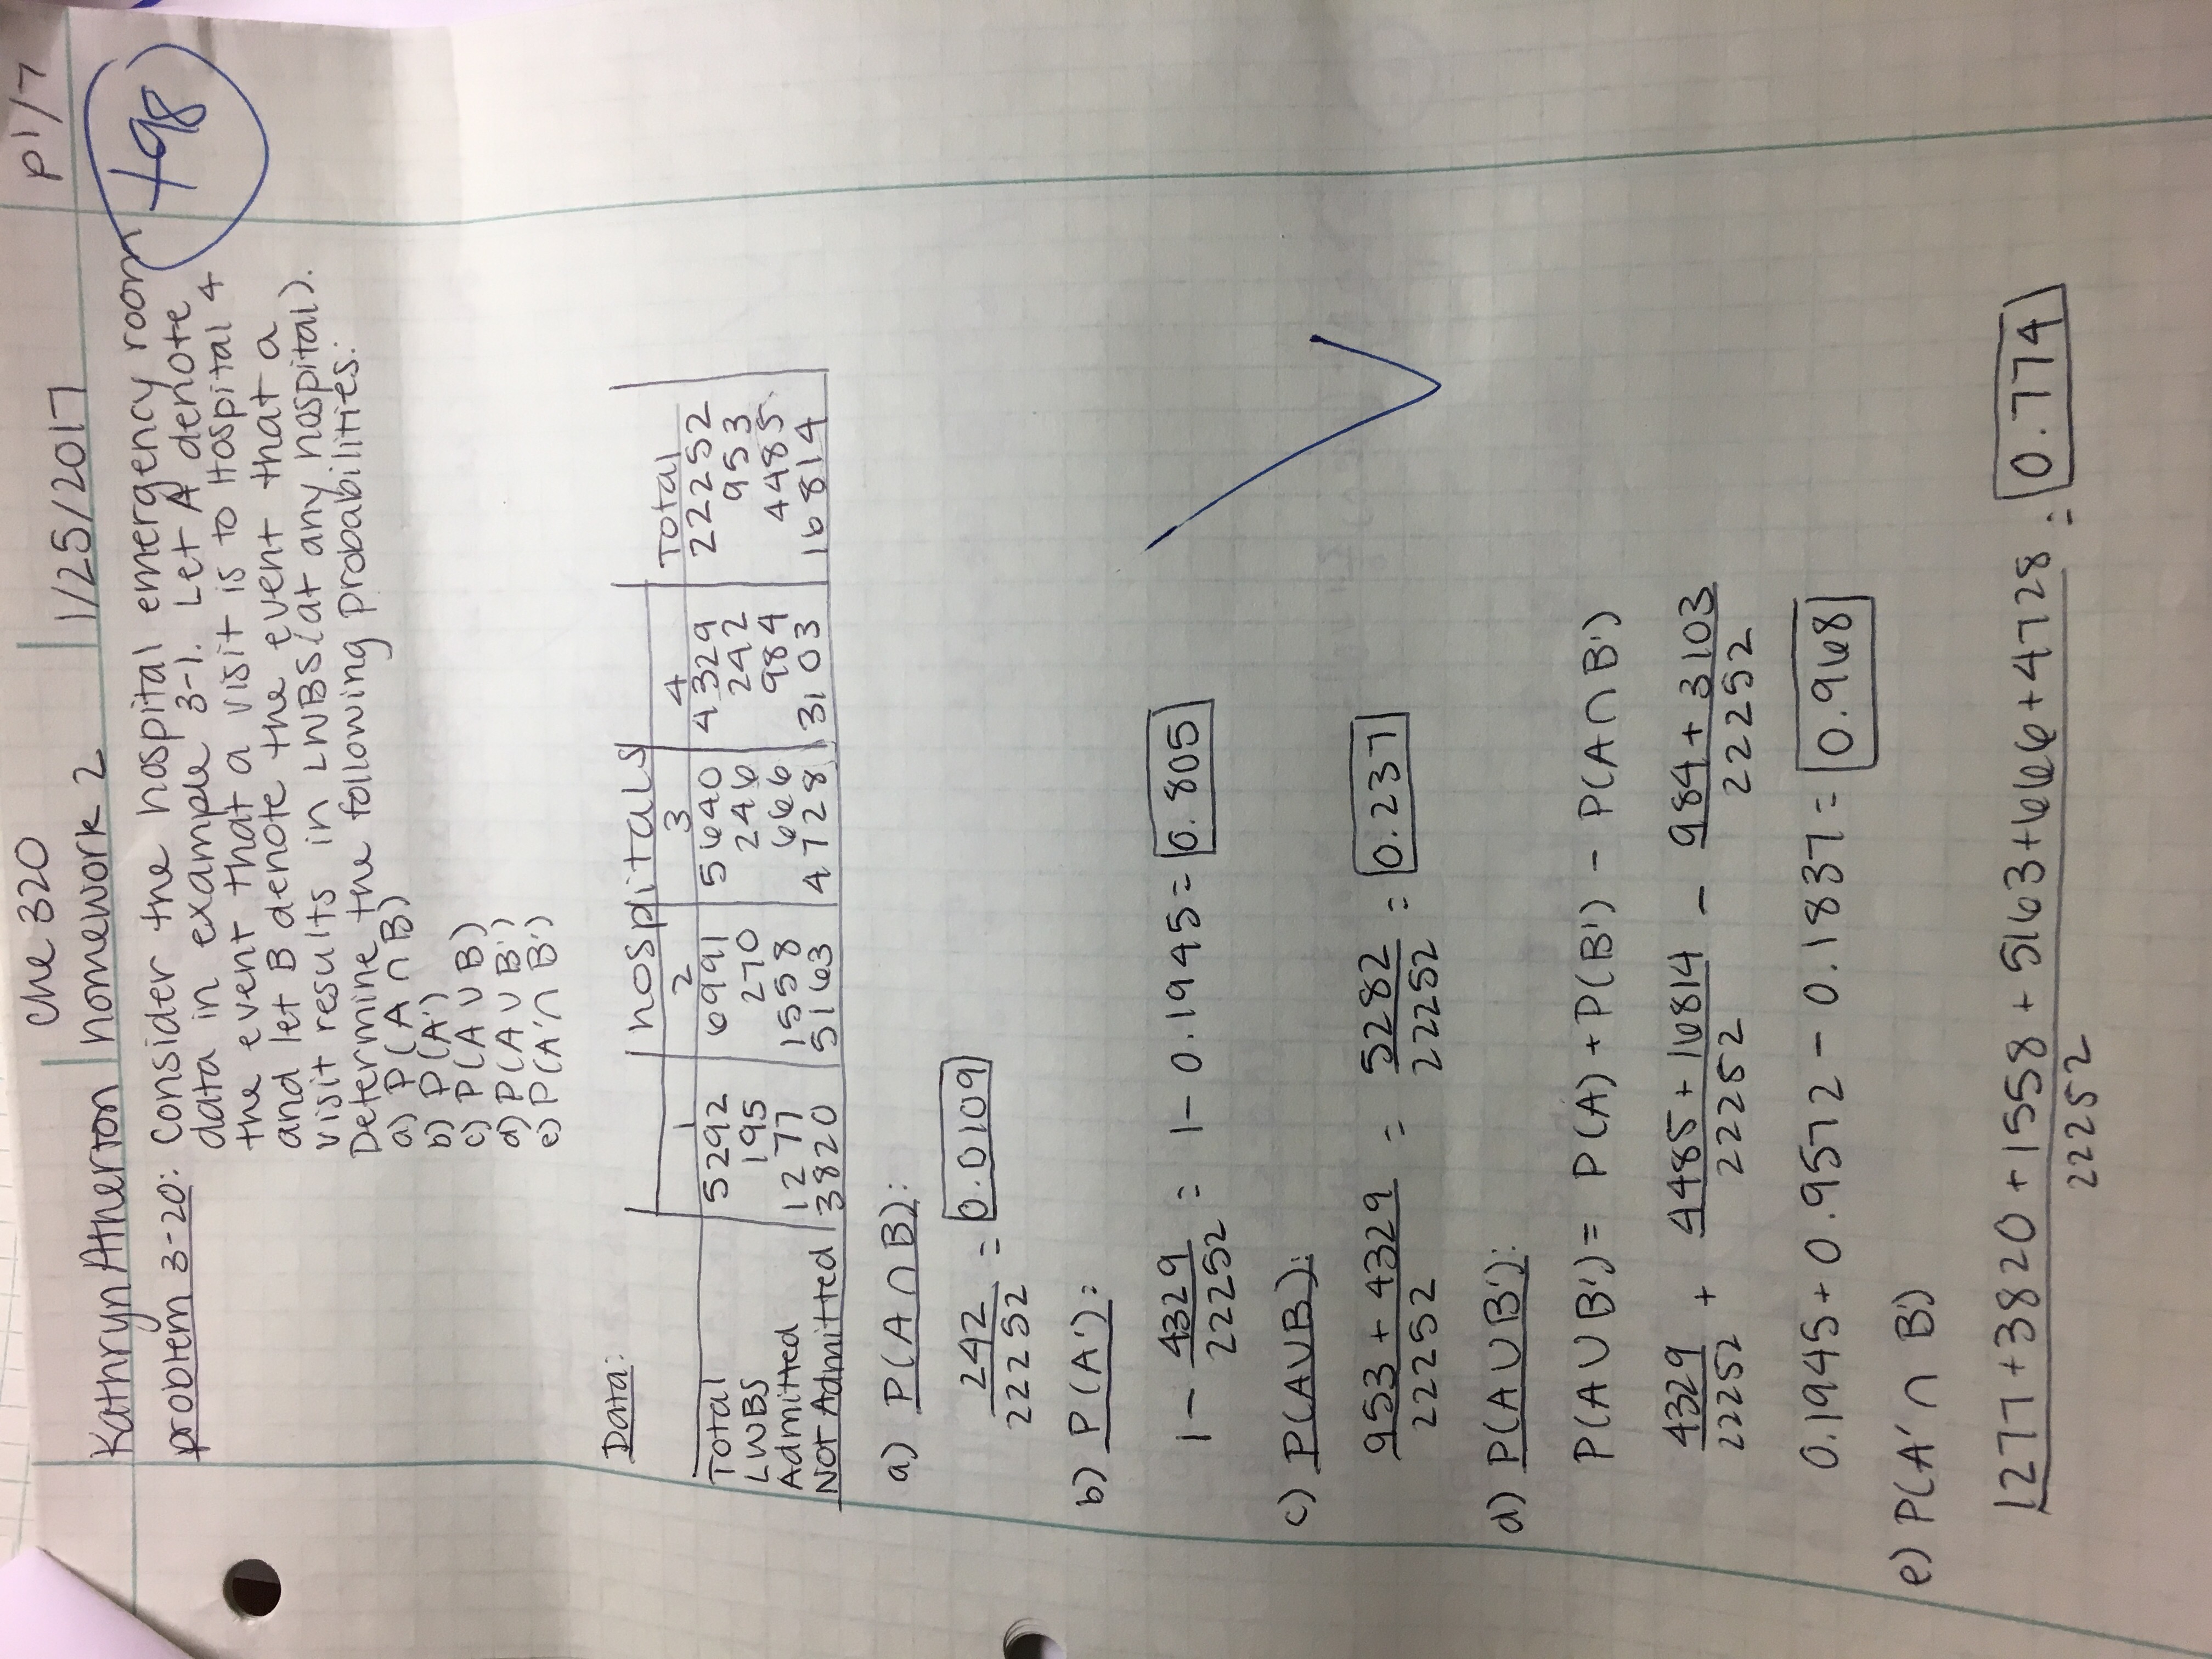 che 320
Kathryn Atherton | homework 2 | 1/25/2017 p1/7
+98
problem 3-20: Consider the hospital emergency room
data in example 3-1. Let A denote
the event that a visit is to Hospital 4
and let B denote the event that a
visit results in LWBS (at any hospital).
Determine the following probabilities:
a) P(A ∩ B)
b) P(A')
c) P(A ∪ B)
d) P(A ∪ B')
e) P(A' ∩ B')
Data:
hospitals
1 2 3 4 Total
Total 5292 6991 5640 4329 22252
LWBS 195 270 246 242 953
Admitted 1277 1558 666 984 4485
Not Admitted 3820 5163 4728 3103 16814
a) P(A ∩ B):
242/22252 = 0.0109
b) P(A'):
1 - 4329/22252 = 1 - 0.1945 = 0.805
c) P(A∪B):
953 + 4329/22252 = 5282/22252 = 0.237
d) P(A ∪ B'):
P(A ∪ B') = P(A) + P(B') - P(A ∩ B')
4329/22252 + 4485 + 16814/22252 - 984 + 3103/22252
0.1945 + 0.9572 - 0.1837 = 0.968
e) P(A' ∩ B')
1277 + 3820 + 1558 + 5163 + 666 + 4728/22252 = 0.774